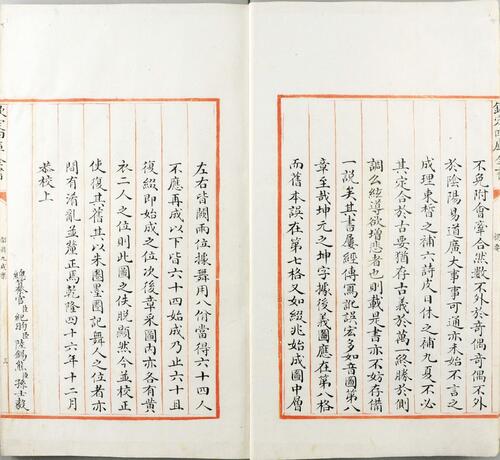 欽定四庫全書
提要
不免附會牽合然數不外於竒偶竒偶不外
於陰陽易道廣大事事可通亦未始不言之
成理束晳之補六詩皮日休之補九夏不必
其定合於古要猶存古義於萬一終勝於側
調么絃導欲增悲者也則載是書亦不妨存備
一說矣其書屢經傳寫訛誤宏多如音圖第八
章至哉坤元之坤字據後義圖應在第八格
而舊本誤在第七格又如綴兆始成圖中層
左右皆闕兩位據舞用八佾當得六十四人
不應再成以下皆六十四始成乃止六十且
復綴即始成之位次後章采圖內亦各有黄
衣二人之位則此圖之佚脫顯然今並校正
使復其舊其以朱圈墨圈記舞人之位者亦
間有淆亂並釐正焉乾隆四十六年十二月
恭校上
總纂官臣紀昀臣陸錫熊臣孫士毅
欽定四庫全書